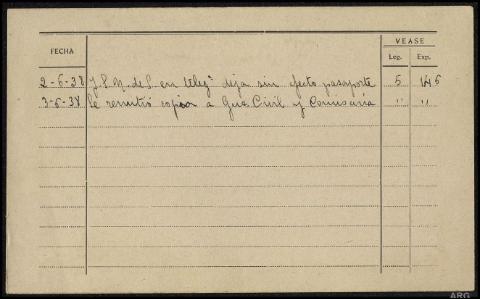 VEASE
FECHA Leg. Exp.
2-6-38 J.S.N. de S. en telegª deja sin efecto pasaporte 5 145
3-6-38 Se remitió copia a Gua. Civil y Comisaría " "
ARG